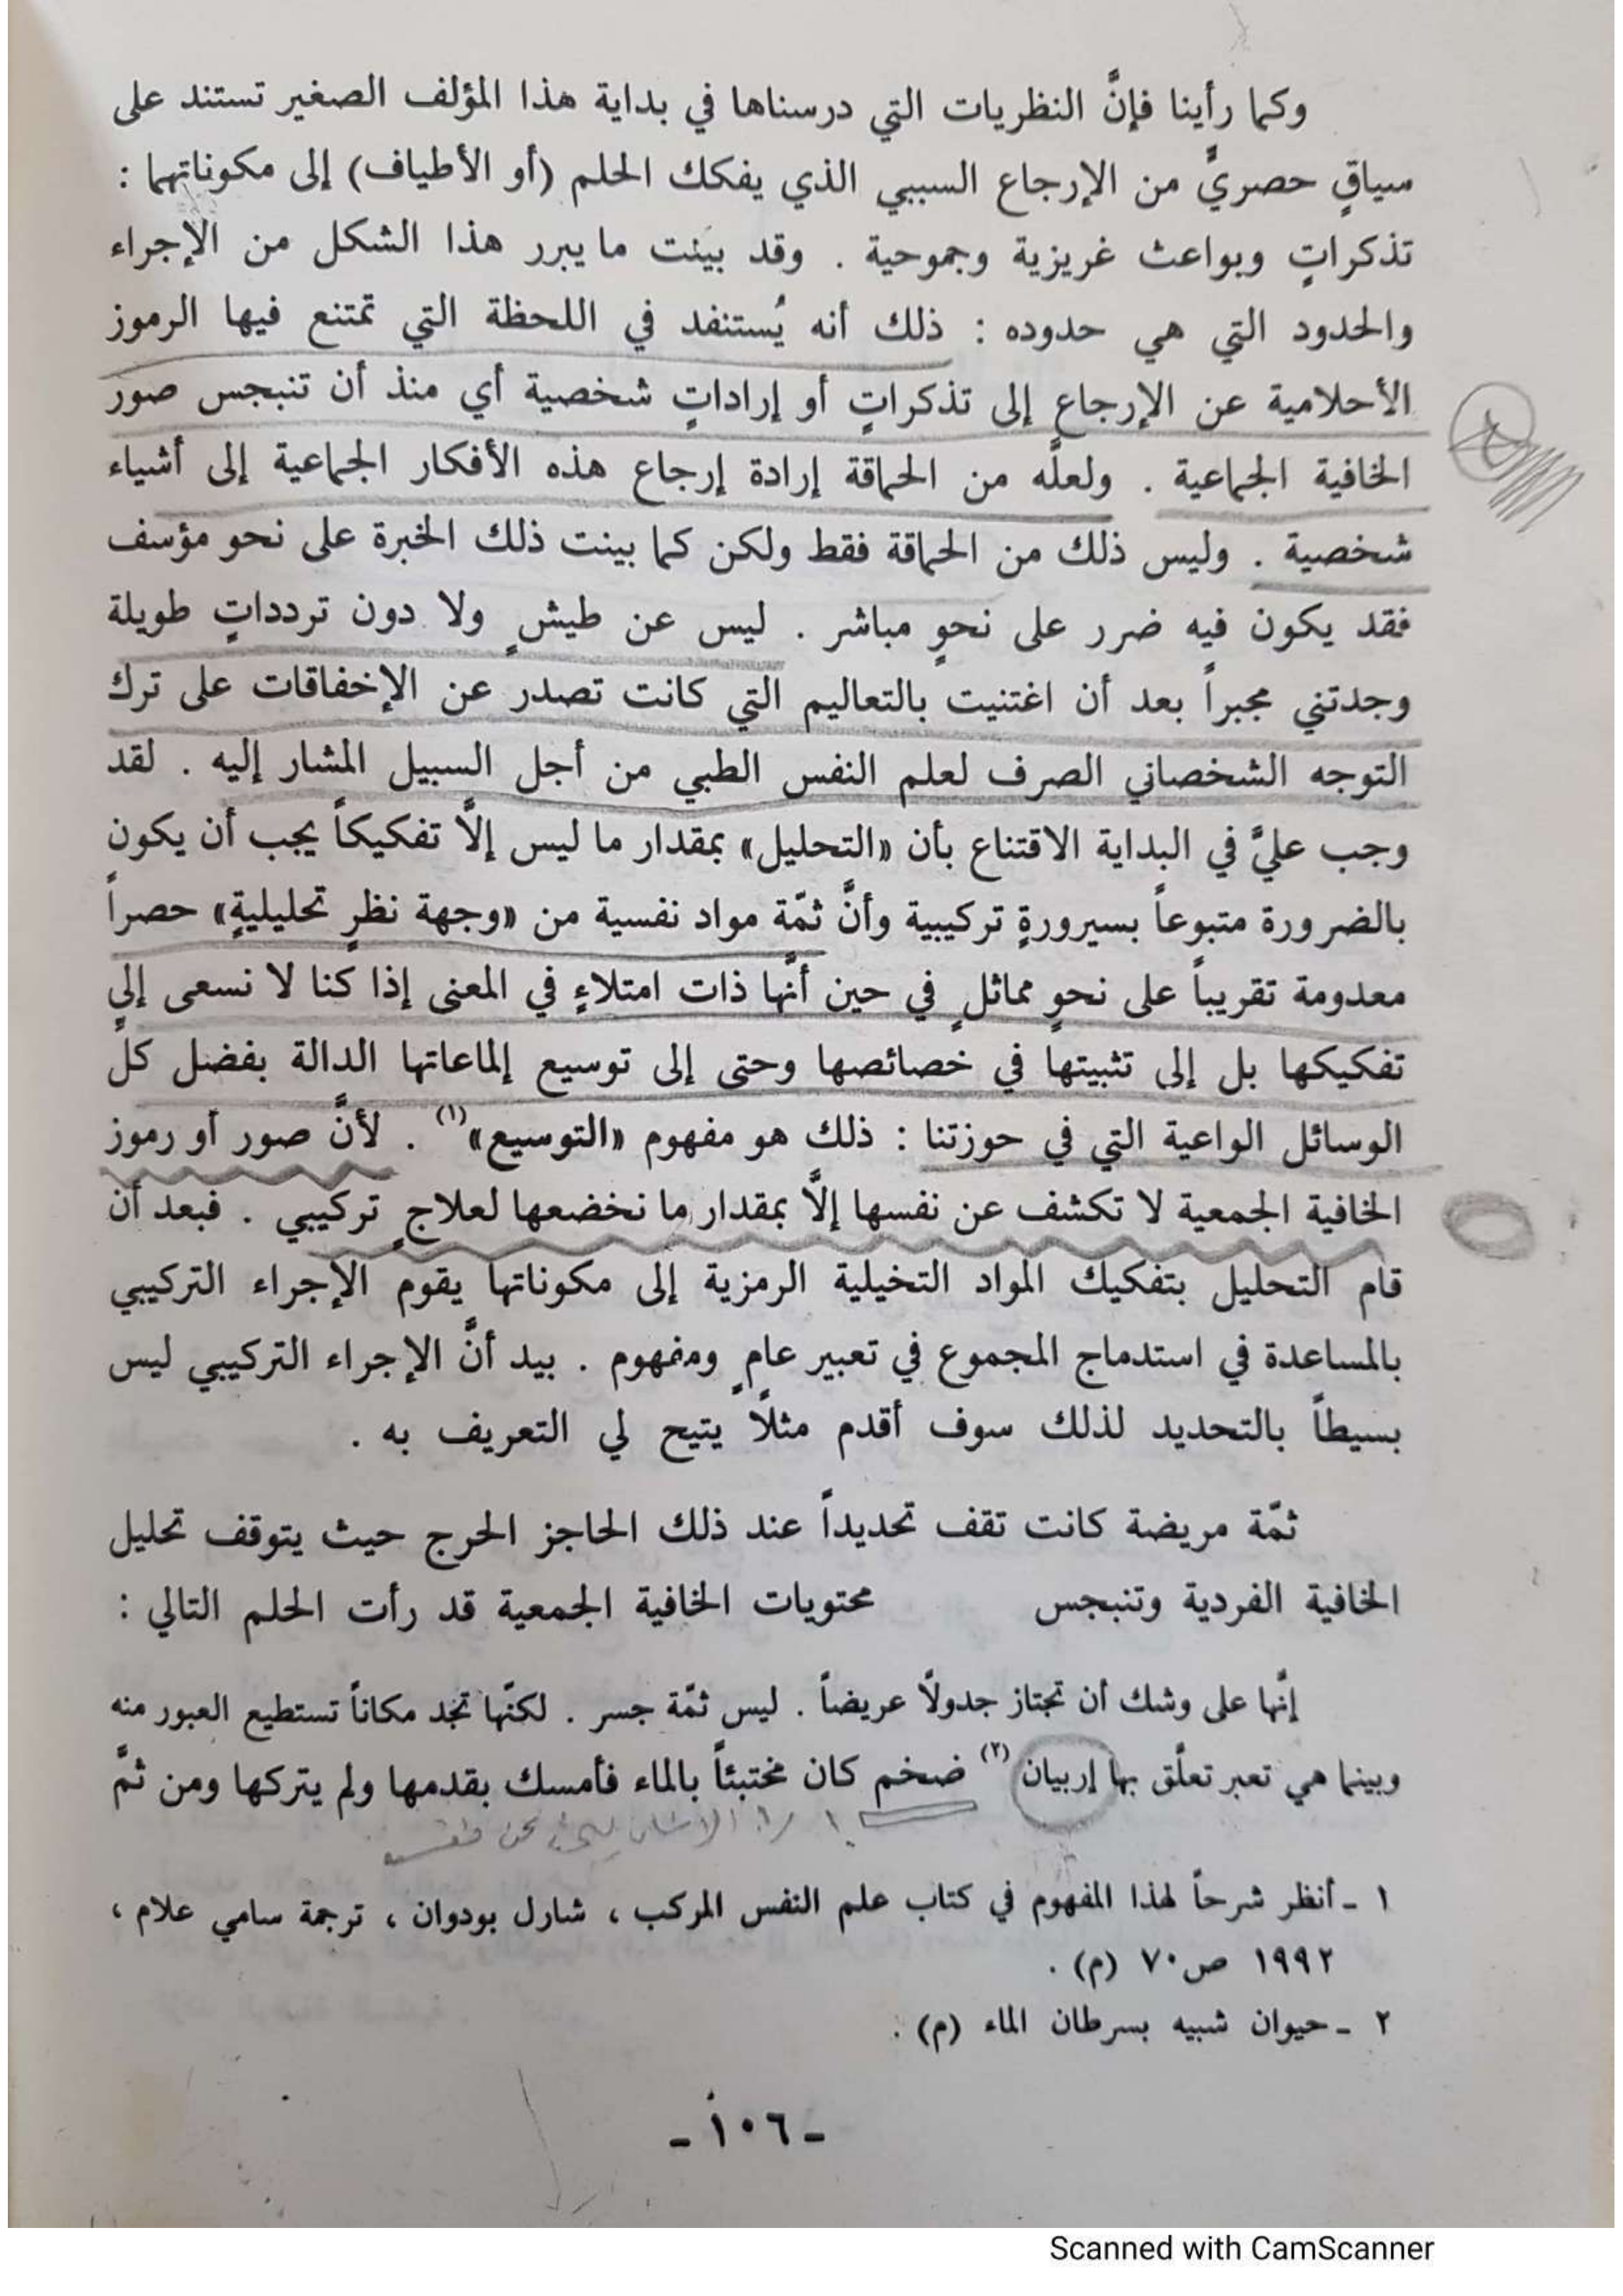 وكما رأينا فإنَّ النظريات التي درسناها في بداية هذا المؤلف الصغير تستند على
سياقٍ حصريٍّ من الإرجاع السببي الذي يفكك الحلم (أو الأطياف) إلى مكوناتهما :
تذكراتٍ وبواعث غريزية وجموحية . وقد بيَنت ما يبرر هذا الشكل من الإجراء
والحدود التي هي حدوده : ذلك أنه يُستنفد في اللحظة التي تمتنع فيها الرموز
الأحلامية عن الإرجاع إلى تذكراتٍ أو إراداتٍ شخصية أي منذ أن تنبجس صور
الخافية الجماعية . ولعلَّه من الحماقة إرادة إرجاع هذه الأفكار الجماعية إلى أشياء
شخصية . وليس ذلك من الحماقة فقط ولكن كما بينت ذلك الخبرة على نحو مؤسف
فقد يكون فيه ضرر على نحوٍ مباشر . ليس عن طيشٍ ولا دون تردداتٍ طويلة
وجدتني مجبراً بعد أن اغتنيت بالتعاليم التي كانت تصدر عن الإخفاقات على ترك
التوجه الشخصاني الصرف لعلم النفس الطبي من أجل السبيل المشار إليه . لقد
وجب عليَّ في البداية الاقتناع بأن «التحليل» بمقدار ما ليس إلاَّ تفكيكاً يجب أن يكون
بالضرورة متبوعاً بسيرورةٍ تركيبية وأنَّ ثمّة مواد نفسية من «وجهة نظرٍ تحليليةٍ» حصراً
معدومة تقريباً على نحوٍ مماثلٍ في حين أنَّها ذات امتلاءٍ في المعنى إذا كنا لا نسعى إلى
تفكيكها بل إلى تثبيتها في خصائصها وحتى إلى توسيع إلماعاتها الدالة بفضل كلِّ
الوسائل الواعية التي في حوزتنا : ذلك هو مفهوم «التوسيع»(١) . لأنَّ صور أو رموز
الخافية الجمعية لا تكشف عن نفسها إلاَّ بمقدار ما نخضعها لعلاجٍ تركيبي . فبعد أن
قام التحليل بتفكيك المواد التخيلية الرمزية إلى مكوناتها يقوم الإجراء التركيبي
بالمساعدة في استدماج المجموع في تعبير عامٍ ومفهوم . بيد أنَّ الإجراء التركيبي ليس
بسيطاً بالتحديد لذلك سوف أقدم مثلاً يتيح لي التعريف به .
ثمّة مريضة كانت تقف تحديداً عند ذلك الحاجز الحرج حيث يتوقف تحليل
الخافية الفردية وتنبجس محتويات الخافية الجمعية قد رأت الحلم التالي :
إنَّها على وشك أن تجتاز جدولاً عريضاً . ليس ثمّة جسر . لكنّها تجد مكاناً تستطيع العبور منه
وبينما هي تعبر تعلَّق بها إربيان (٢) ضخم كان مختبئاً بالماء فأمسك بقدمها ولم يتركها ومن ثمَّ
١ ـ أنظر شرحاً لهذا المفهوم في كتاب علم النفس المركب ، شارل بودوان ، ترجمة سامي علام ،
١٩٩٢ ص٧٠ (م) .
٢ ـ حيوان شبيه بسرطان الماء (م) .
ـ ١٠٦ ـ
Scanned with CamScanner